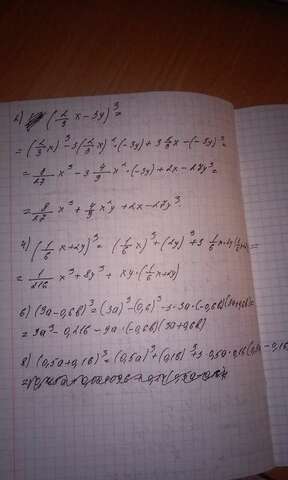 2) (2/3 x - 3y)^3 =
= (2/3 x)^3 - 3(2/3 x)^2 · (-3y) + 3 x - (-3y)^3 =
= 8/27 x^3 - 3 4/9 x^2 · (-3y) + 2x - 27y^3 =
= 8/27 x^3 + 4/9 x^2 y + 2x - 27y^3
4) (1/6 x + 2y)^3 = (1/6 x)^3 + (2y)^3 + 3 · 1/6 x · 2y =
= 1/216 x^3 + 8y^3 + xy · (1/6 x + 2y)
6) (3a - 0,6b)^3 = (3a)^3 - (0,6)^3 - 3 · 3a · (-0,6b)
= 3a^3 - 0,216 - 9a · (-0,6b)(3a + 0,6b)
8) (0,5a + 0,1b)^3 = (0,5a)^3 + (0,1b)^3 + 3 · 0,5a · 0,1b